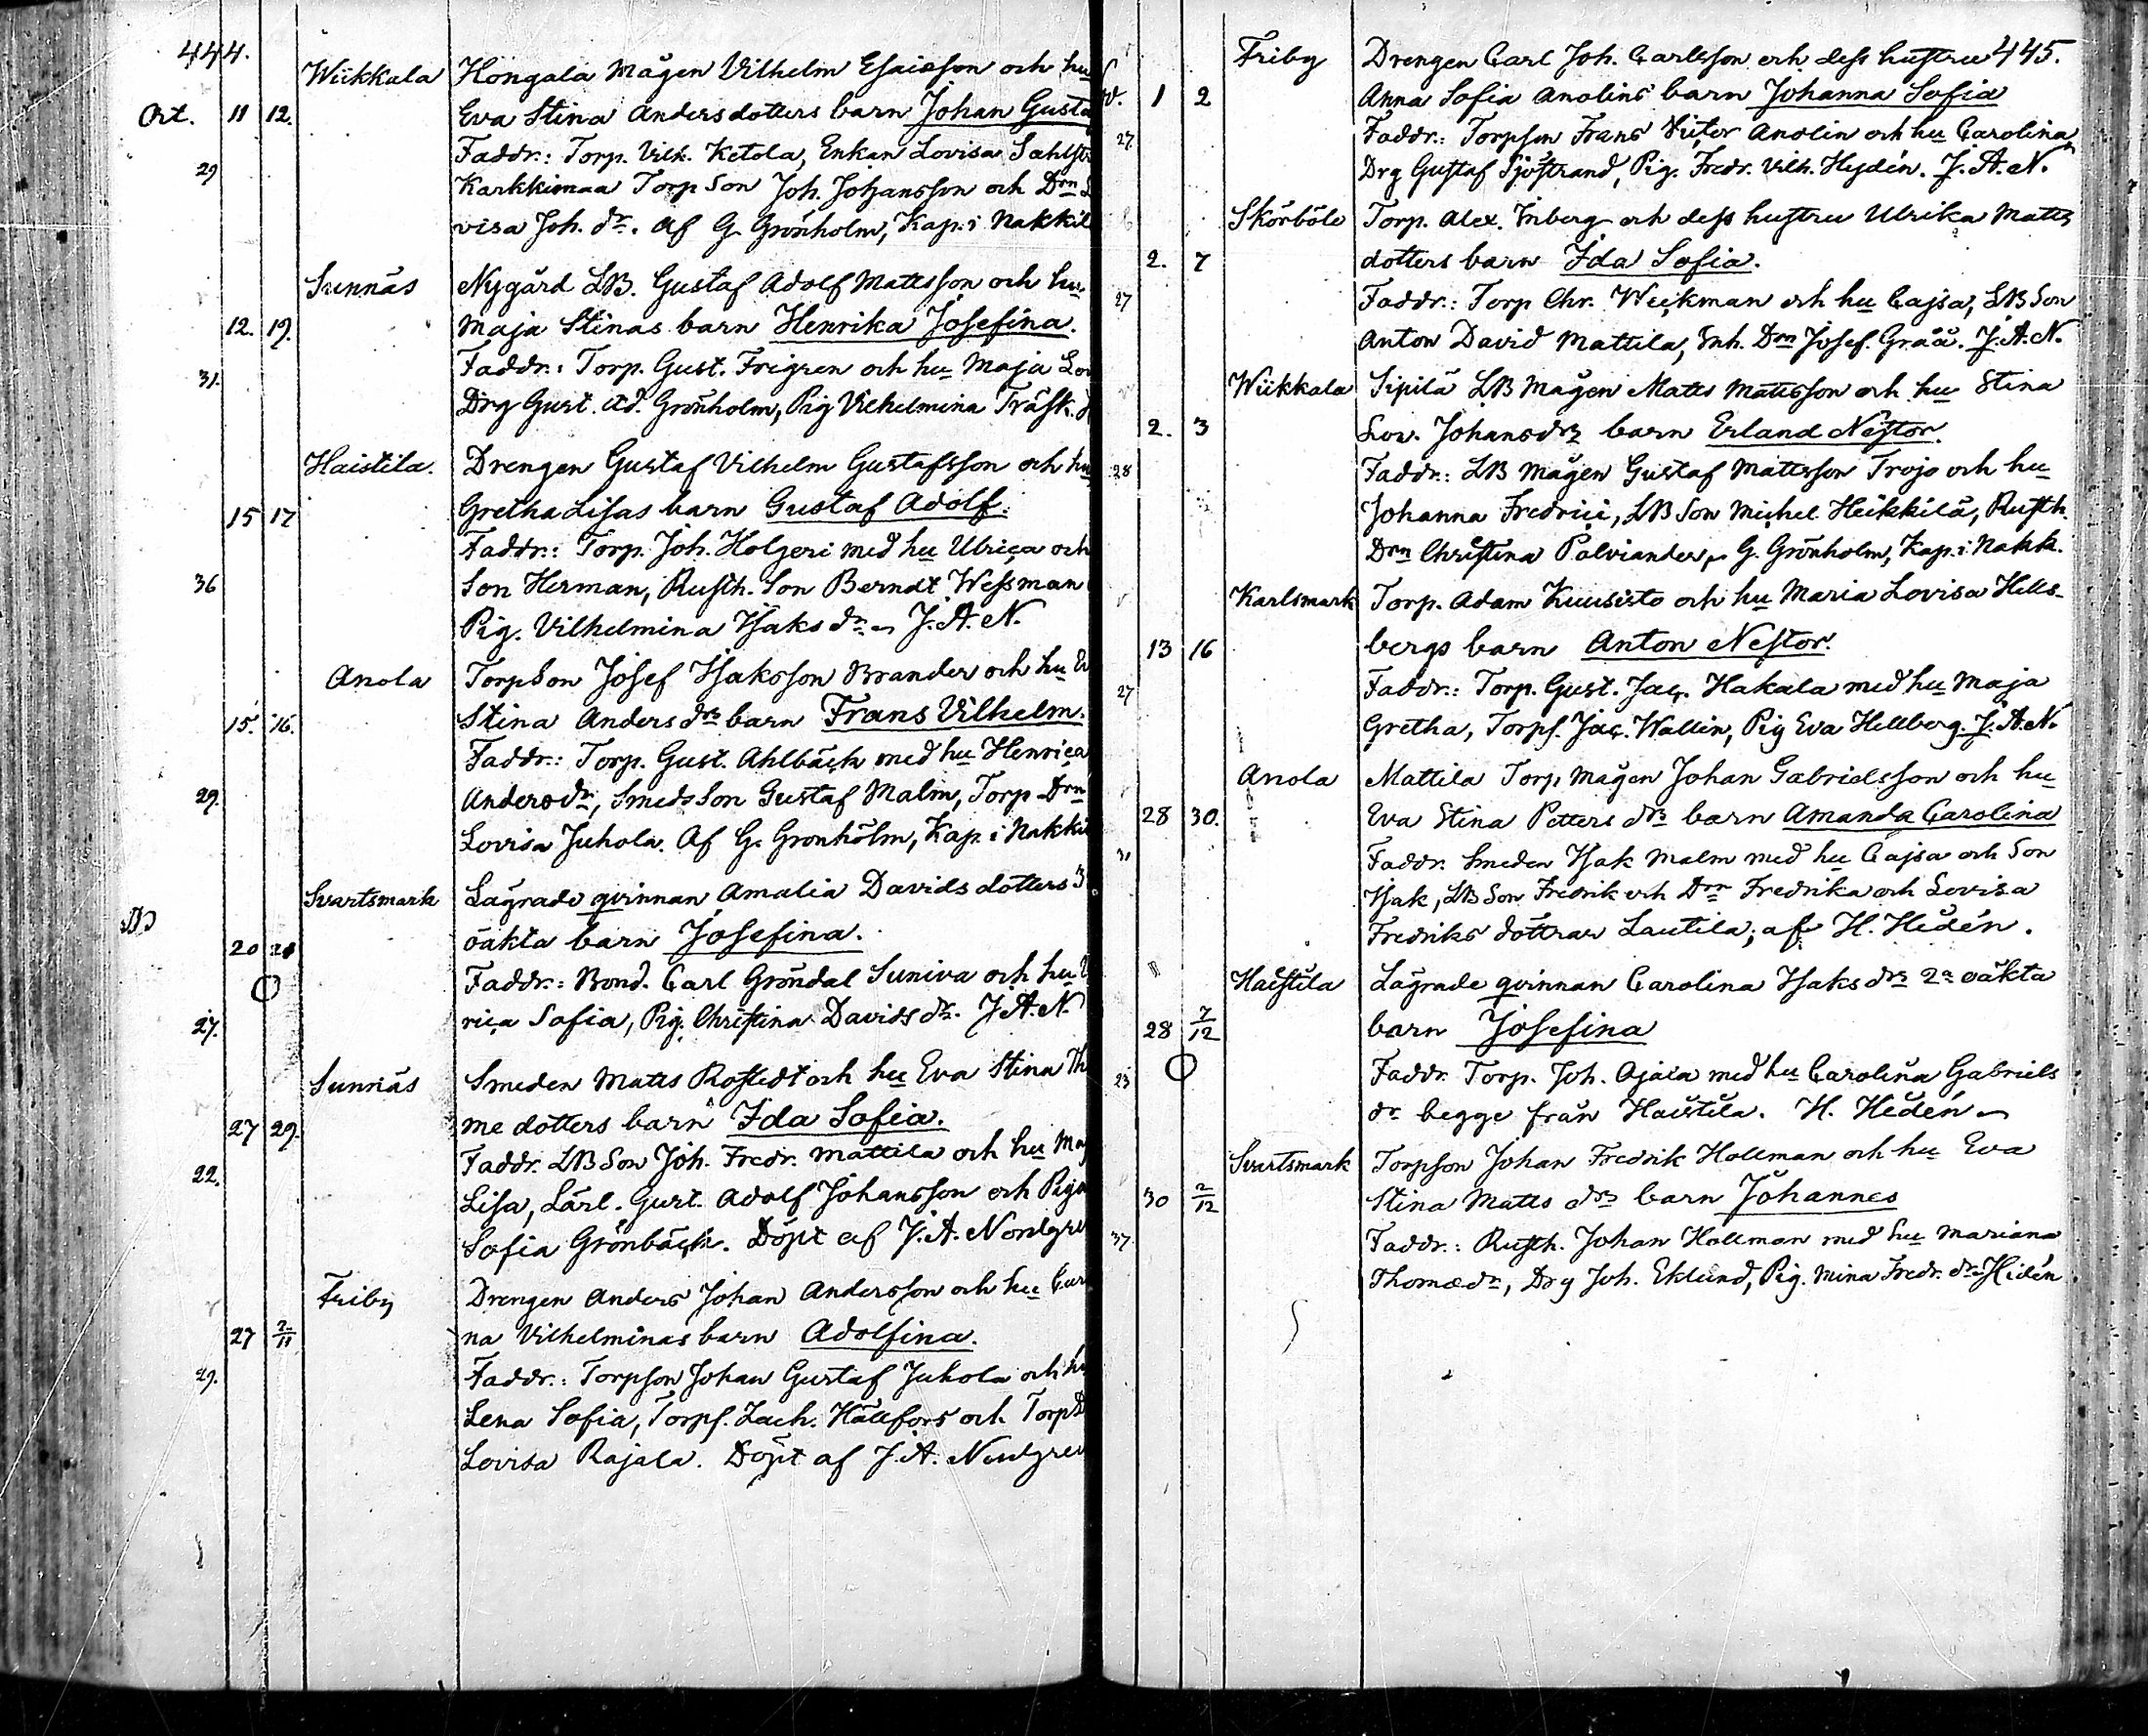 444.
Wiikkala Hongala Mågen Vilhelm Esaiasson och hu
Oct. 11 12. Eva Stina Andersdotters barn Johan Gusta
Faddr.: Torp. Vilh. Ketola, Enkan Lovisa Sahlst
29 Karkkimaa Torp Son Joh. Johansson och Drn
visa Joh. dr. Af G. Grönholm, Kap. i Nakkil
Sunnäs Nygård LB. Gustaf Adolf Mattsson och hu
12. 19. Maja Stinas barn Henrika Josefina.
Faddr.: Torp. Gust. Frigren och hu Maja Lov
31. Drg Gust. Ad. Grönholm, Pig Vilhelmina Träsk.
Haistila. Drengen Gustaf Vilhelm Gustafsson och hu
15 17 Gretha Lisas barn Gustaf Adolf.
Faddr.: Torp. Joh. Holgeri med hu Ulrica och
36 Son Herman, Rusth. Son Berndt Wessman
Pig. Vilhelmina Isaks dr. J. A. N.
Anola Torp Son Josef Isaksson Brander och hu
15. 16. Stina Anders drs barn Frans Vilhelm.
Faddr.: Torp. Gust. Ahlbäck med hu Henrica
29. Andersdr, Smeds Son Gustaf Malm, Torp Drn
Lovisa Juhola. Af G. Grönholm, Kap. i Nakki
Svartsmark Lägrade qvinnan Amalia Davids dotters
20 oäkta barn Josefina.
Faddr.: Bond. Carl Gröndal Suniva och hu
27. rica Sofia, Pig. Christina Davids dr. J. A. N.
Sunnäs Smeden Matts Rostedt och hu Eva Stina Th
27 29. me dotters barn Ida Sofia.
22. Faddr. LB Son Joh. Fredr. Mattila och hu Maj
Lisa, Lärl. Gust. Adolf Johansson och Piga
Sofia Grönbäck. Döpt af J. A. Nordgre
Friby Drengen Anders Johan Andersson och hu
27 2/11 na Vilhelminas barn Adolfina.
29. Faddr.: Torpson Johan Gustaf Juhola och hu
Lena Sofia, Torps. Zach. Hällfors och Torp
Lovisa Rajala. Döpt af J. A. Nordgren
445.
Friby Drengen Carl Joh. Carlsson och dess hustru
1 2 Anna Sofia Anolins barn Johanna Sofia
27. Faddr.: Torpson Frans Victor Anolin och hu Carolina,
Drg Gustaf Sjöstrand, Pig. Fredr. Vilh. Hydén. J. A. N.
Skörböle Torp. Alex. Enberg och dess hustru Ulrika Matts
2. 7 dotters barn Ida Sofia.
27 Faddr.: Torp Chr. Weckman och hu Cajsa, LB Son
Anton David Mattila, Inh. Drn Josef. Gråå. J. A. N.
Wiikkala Sipilä LB Mågen Matts Mattsson och hu Stina
2. 3 Lov. Johansdrs barn Erland Nestor.
28 Faddr.: LB Mågen Gustaf Mattsson Trojo och hu
Johanna Fredrici, LB Son Michel Heikkilä, Rusth.
Drn Christina Palviander, G. Grönholm, Kap. i Nakk.
Karlsmark Torp. Adam Kuusisto och hu Maria Lovisa Hells-
13 16 bergs barn Anton Nestor.
27 Faddr.: Torp. Gust. Jac. Hakala med hu Maja
Gretha, Torps. Jac. Wallin, Pig Eva Hellberg. J. A. N.
Anola Mattila Torp Mågen Johan Gabrielsson och hu
28 30. Eva Stina Petters drs barn Amanda Carolina
31 Faddr. Smeden Isak Malm med hu Cajsa och Son
Isak, LB Son Fredrik och Drn Fredrika och Lovisa
Fredriks döttrar Lautila; af H. Hedén.
Haistila Lägrade qvinnan Carolina Isaks drs 2a oäkta
28 7/12 barn Josefina
23 Faddr. Torp. Joh. Ojala med hu Carolina Gabriels
dr begge från Haistila. H. Hedén
Svartsmark Torpson Johan Fredrik Hollman och hu Eva
30 2/12 Stina Matts drs barn Johannes
37. Faddr.: Rusth. Johan Hollman med hu Mariana
Thomædr, Drg Joh. Eklund, Pig. Mina Fredr. dr. Hidén